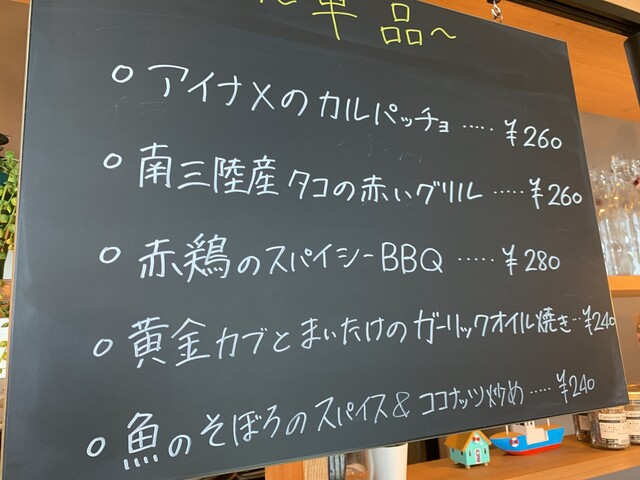 単品～
○ アイナメのカルパッチョ ····· ¥260
○ 南三陸産タコの赤いグリル ····· ¥260
○ 赤鶏のスパイシーBBQ ····· ¥280
○ 黄金カブとまいたけのガーリックオイル焼き ··· ¥240
○ 魚のそぼろのスパイス&ココナッツ炒め ····· ¥240